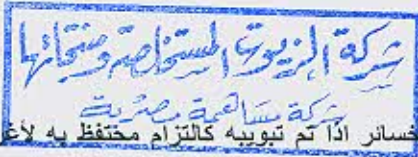 شركة الزيوت المستخلصة ومنتجاتها
شركة مساهمة مصرية
خسائر اذا تم تبويبه كالتزام محتفظ به لأغر